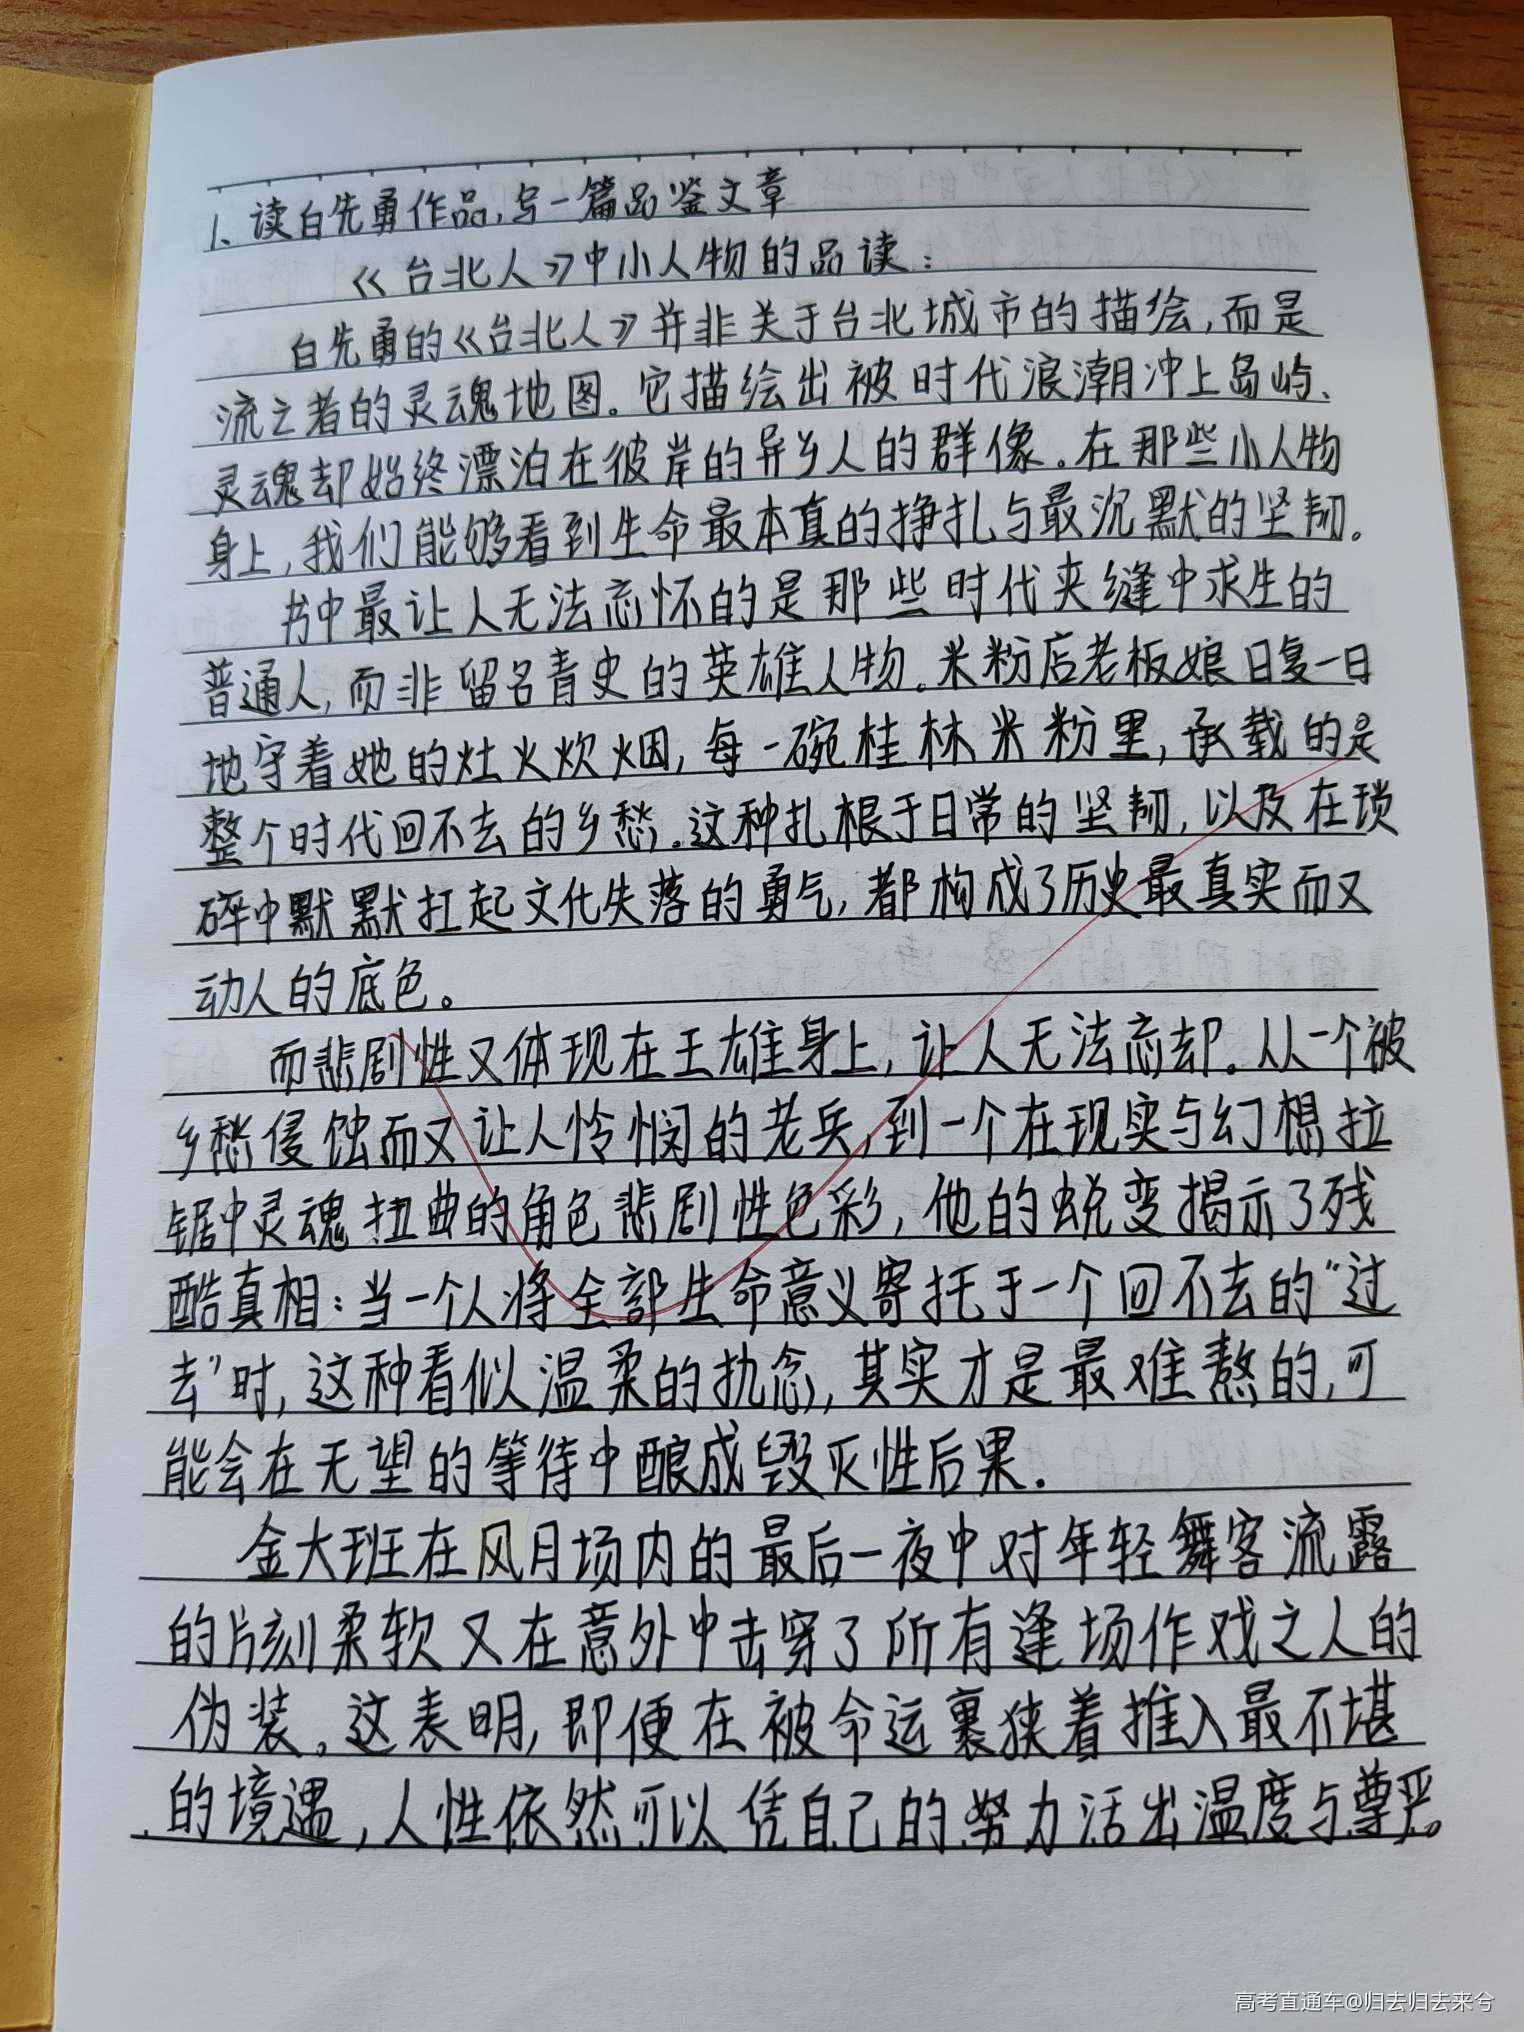 1、读白先勇作品,写一篇品鉴文章
《台北人》中小人物的品读：
白先勇的《台北人》并非关于台北城市的描绘,而是
流亡者的灵魂地图。它描绘出被时代浪潮冲上岛屿、
灵魂却始终漂泊在彼岸的异乡人的群像。在那些小人物
身上,我们能够看到生命最本真的挣扎与最沉默的坚韧。
书中最让人无法忘怀的是那些时代夹缝中求生的
普通人,而非留名青史的英雄人物。米粉店老板娘日复一日
地守着她的灶火炊烟,每一碗桂林米粉里,承载的是
整个时代回不去的乡愁。这种扎根于日常的坚韧,以及在琐
碎中默默扛起文化失落的勇气,都构成了历史最真实而又
动人的底色。
而悲剧性又体现在王雄身上,让人无法忘却.从一个被
乡愁侵蚀而又让人怜悯的老兵,到一个在现实与幻想拉
锯中灵魂扭曲的角色悲剧性色彩,他的蜕变揭示了残
酷真相:当一个人将全部生命意义寄托于一个回不去的“过
去”时,这种看似温柔的执念,其实才是最难熬的,可
能会在无望的等待中酿成毁灭性后果.
金大班在风月场内的最后一夜中对年轻舞客流露
的片刻柔软又在意外中击穿了所有逢场作戏之人的
伪装。这表明,即便在被命运裹狭着推入最不堪
的境遇,人性依然可以凭自己的努力活出温度与尊严。
高考直通车@归去归去来兮